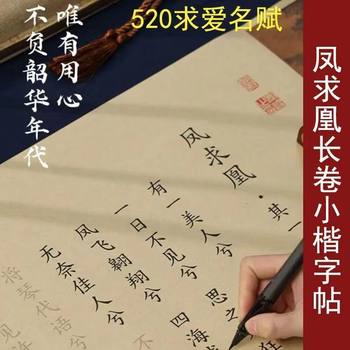 520求爱名赋
唯有用心
不负韶华年代
凤求凰长卷小楷字帖
凤求凰·其一
有一美人兮
思之
一日不见兮
狂
凤飞翱翔兮
四海
无奈佳人兮
将琴代语兮